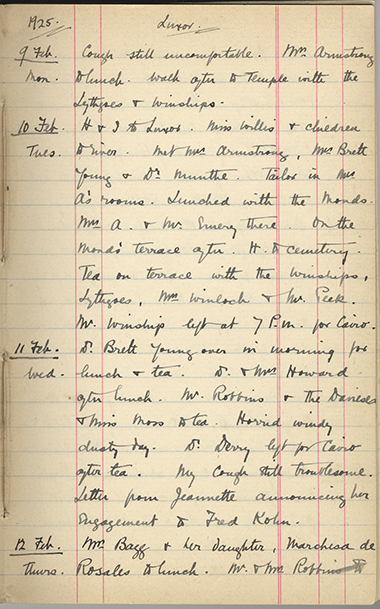 1925. Luxor.
9 Feb. Cough still uncomfortable. Mrs Armstrong
Mon. to lunch. Walk after to Temple with the
Lythgoes & Winships.
10 Feb. H & I to Luxor. Miss Willis & children
Tues. to river. Met Mrs Armstrong, Mrs Brett
Young & Dr Munthe. Tailor in Mrs
A's rooms. Lunched with the Monds.
Mrs A. & Mr. Emery there. On the
Monds' terrace after. H. to cemetery.
Tea on terrace with the Winships,
Lythgoes, Mrs Winlock & Mr. Peek.
Mr. Winship left at 7 P.m. for Cairo.
11 Feb. D. Brett Young over in morning for
Wed. lunch & tea. D. & Mrs Howard
after lunch. Mr. Robbins & the Davieses
& Miss Moss to tea. Horrid windy
dusty day. D. Derry left for Cairo
after tea. My cough still troublesome.
Letter from Jeannette announcing her
Engagement to Fred Kohn.
12 Feb. Mrs Bagg & her daughter, Marchesa de
Thurs. Rosales to lunch. Mr. & Mrs Robbins to